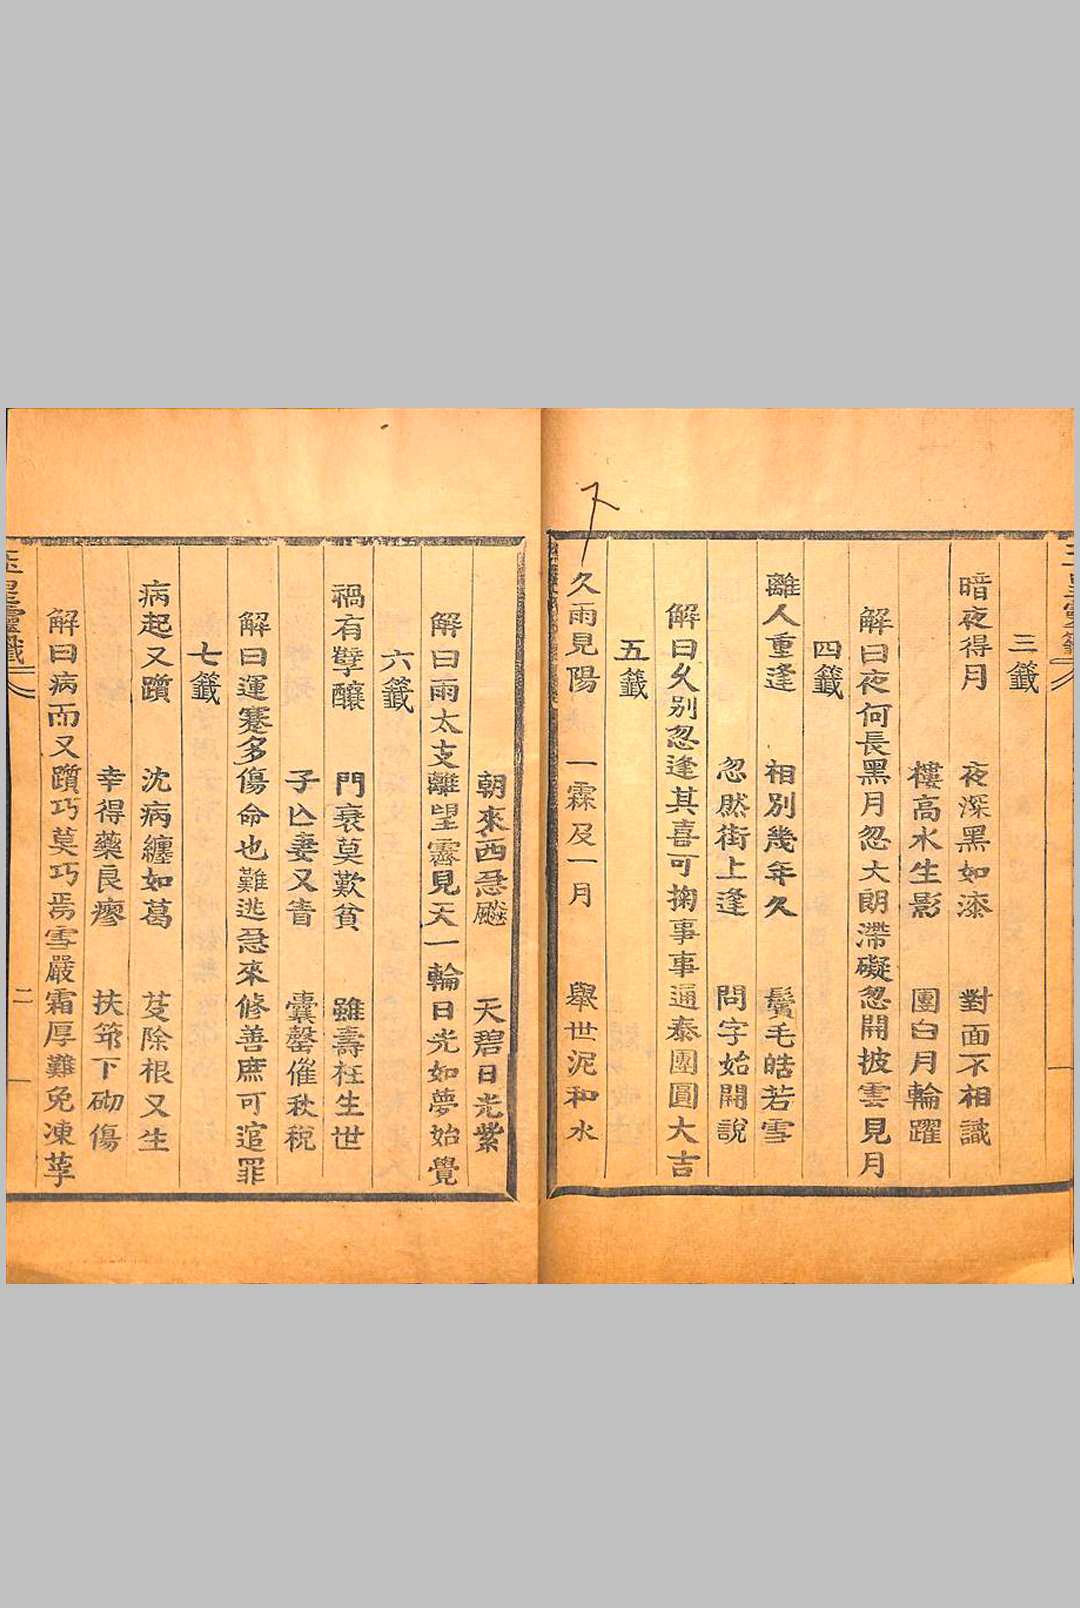 玉皇靈籤
三籤
暗夜得月　夜深黑如漆　對面不相識
樓高水生影　團白月輪躍
解曰夜何長黑月忽大朗滯礙忽開披雲見月
四籤
離人重逢　相別幾年久　鬢毛皓若雪
忽然街上逢　問字始開說
解曰久別忽逢其喜可掬事事通泰團圓大吉
五籤
久雨見陽　一霖及一月　舉世泥和水
朝來西忽飈　天碧日光紫
解曰雨太支離望霽見天一輪日光如夢始覺
六籤
禍有孽釀　門衰莫歎貧　雖壽枉生世
子亡妻又眚　囊罄催秋稅
解曰運蹇多傷命也難逃忽來修善庶可逭罪
七籤
病起又躓　沈病纏如葛　芟除根又生
幸得藥良瘳　扶筇下砌傷
解曰病而又躓巧莫巧焉雪嚴霜厚難免凍莩
玉皇靈籤
二